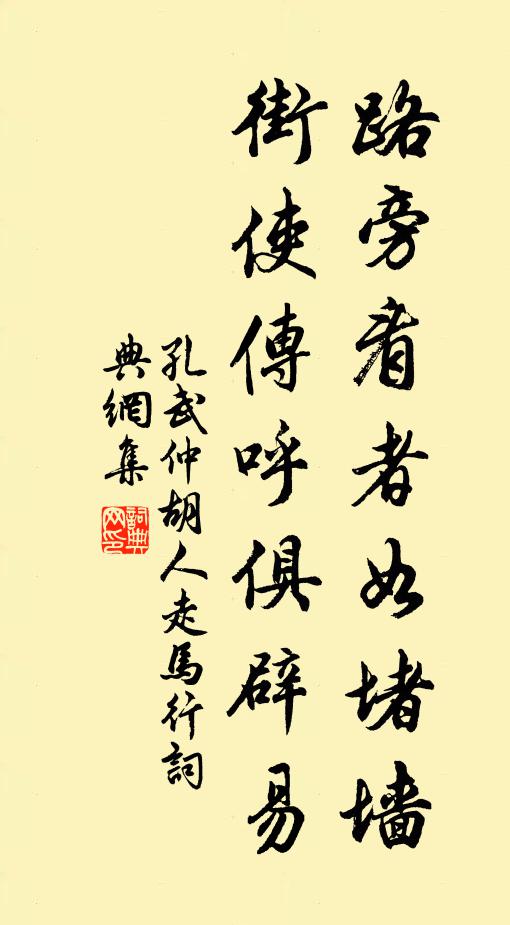 路旁看者如堵墙
街使傳呼俱辟易
孔武仲胡人走馬行詞
典網集
詞典
网印